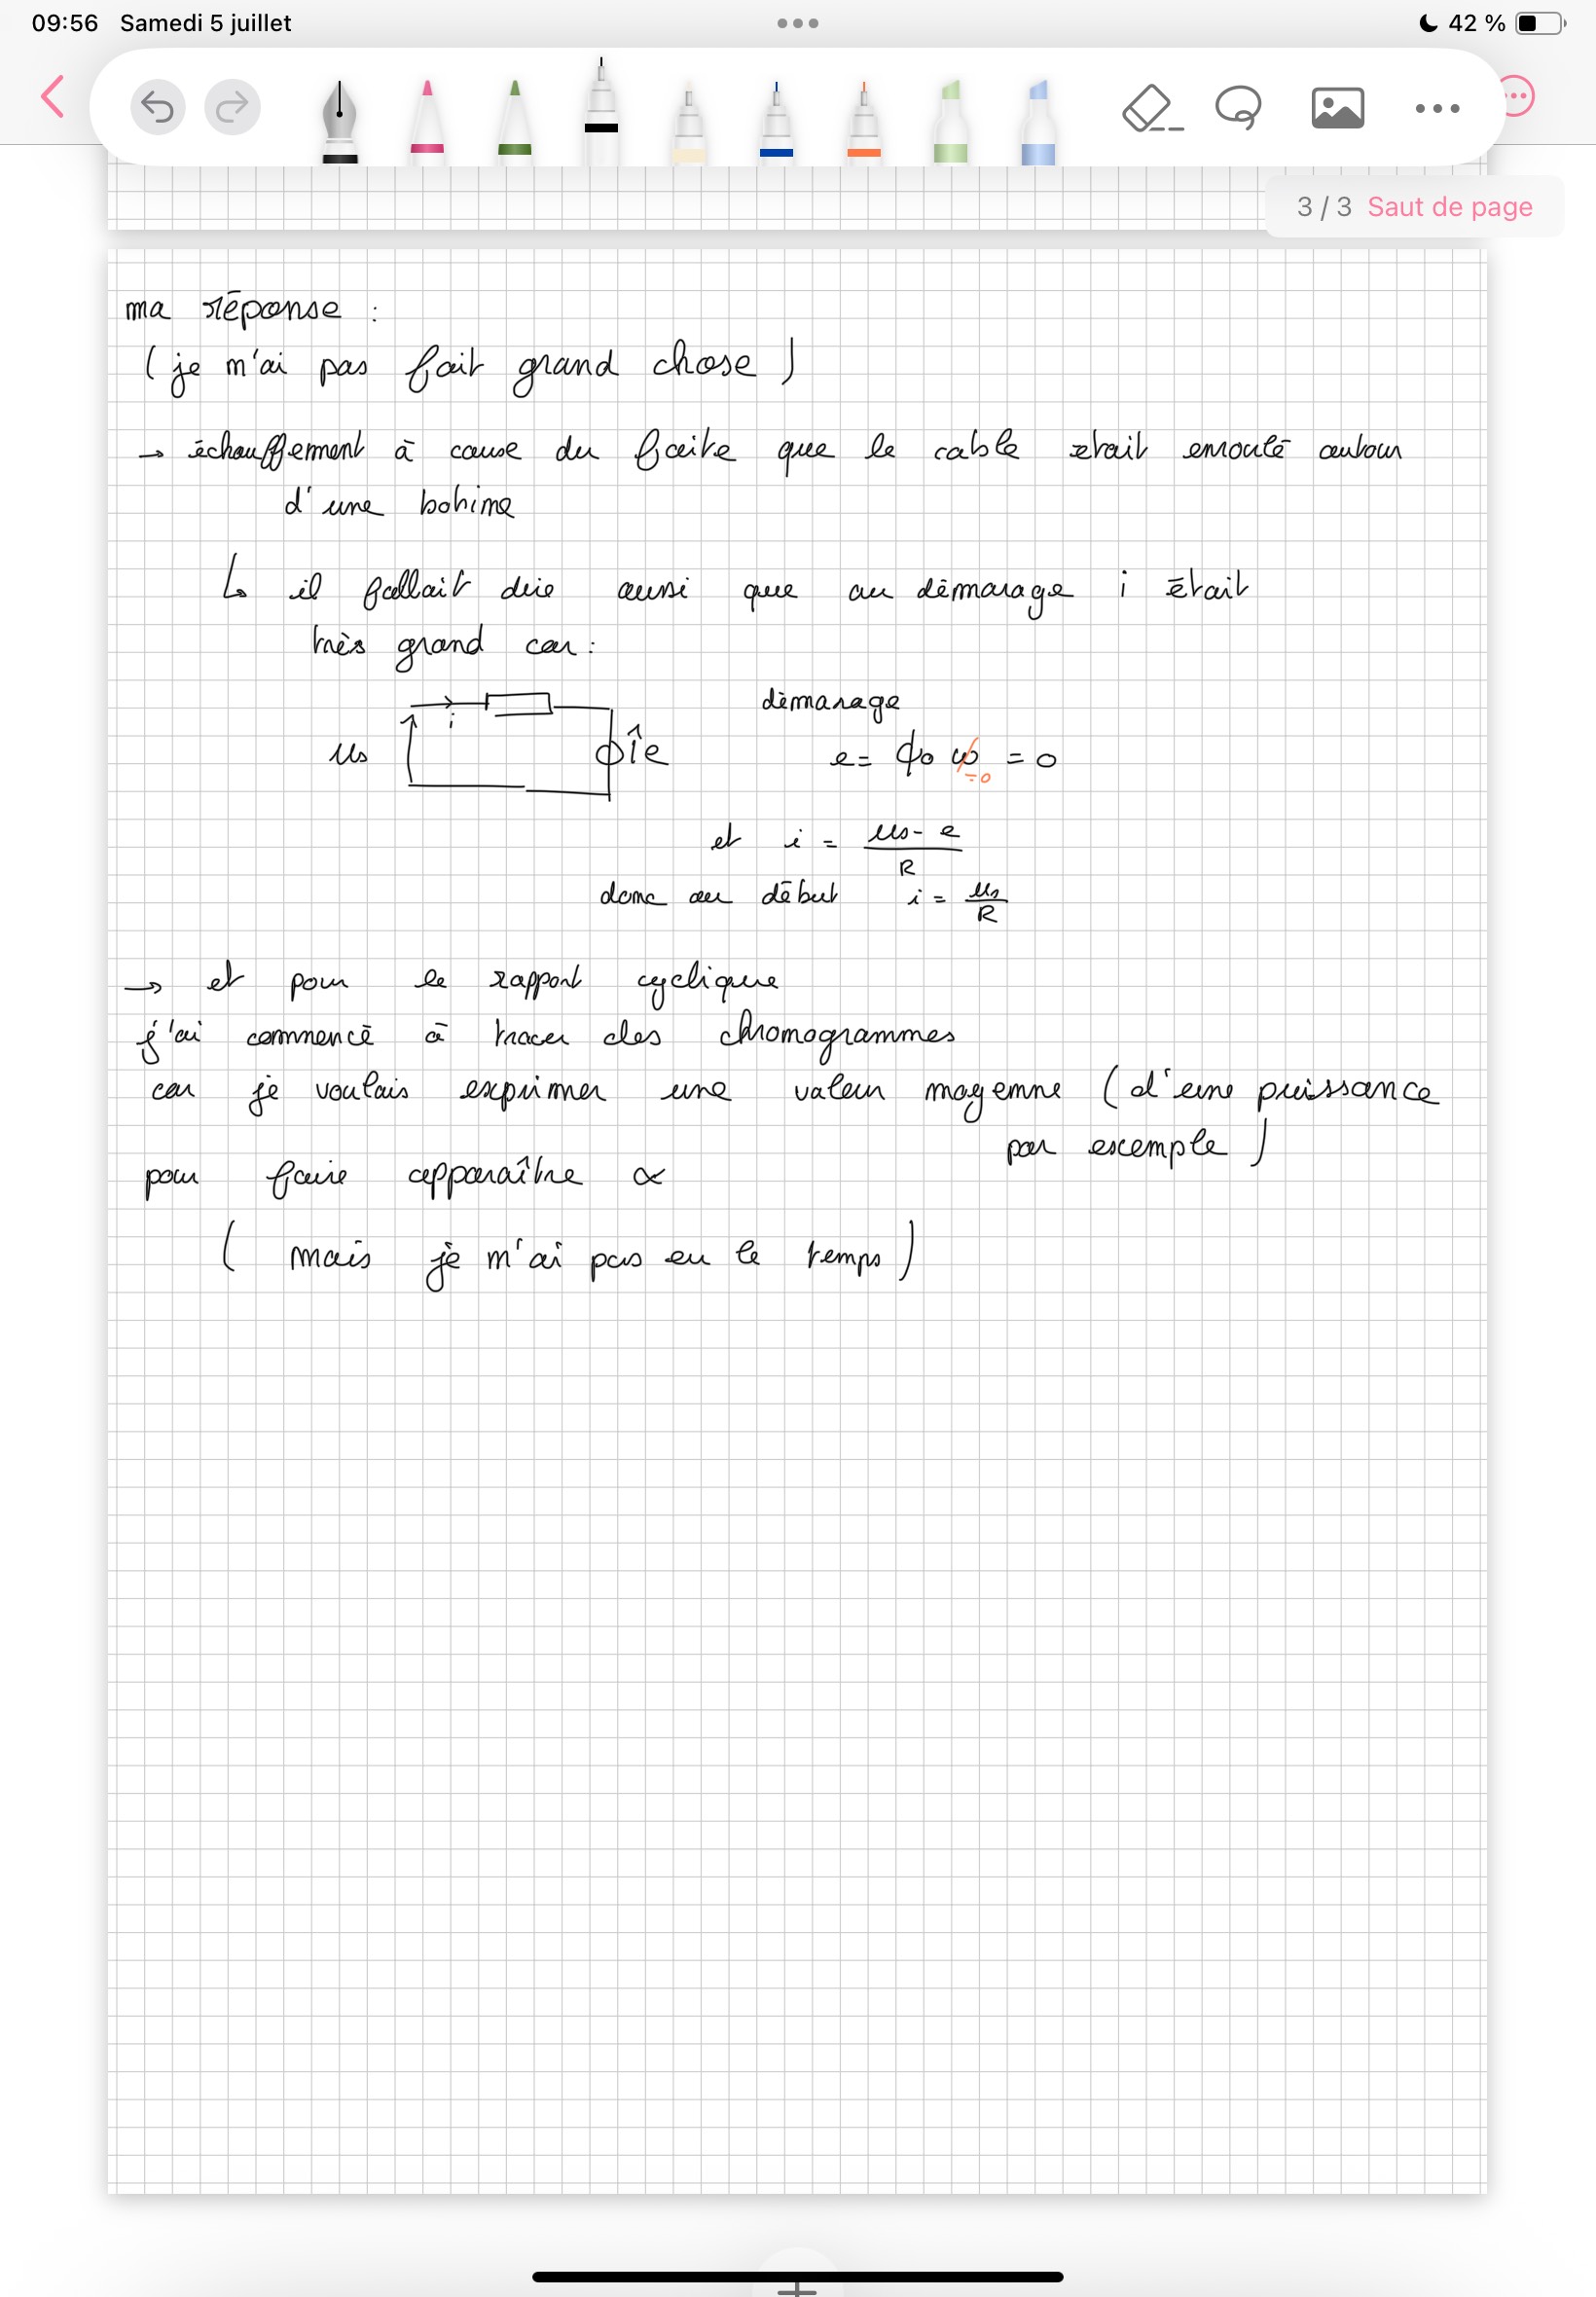 09:56 Samedi 5 juillet
42 %
3 / 3 Saut de page
ma réponse :
( je m'ai pas fait grand chose )
→ échauffement à cause du faite que le cable etait enroulé autour
d'une bobine
↳ il fallait dire aussi que au démarage i était
très grand car :
démarage
i
us
e
e = ϕ0 ω = 0
=0
et i = us - e / R
donc au début i = us / R
→ et pour le rapport cyclique
j'ai commencé à tracer des chronogrammes
car je voulais exprimer une valeur moyenne ( d'une puissance
par exemple )
pour faire apparaître ∝
( mais je m'ai pas eu le temps )